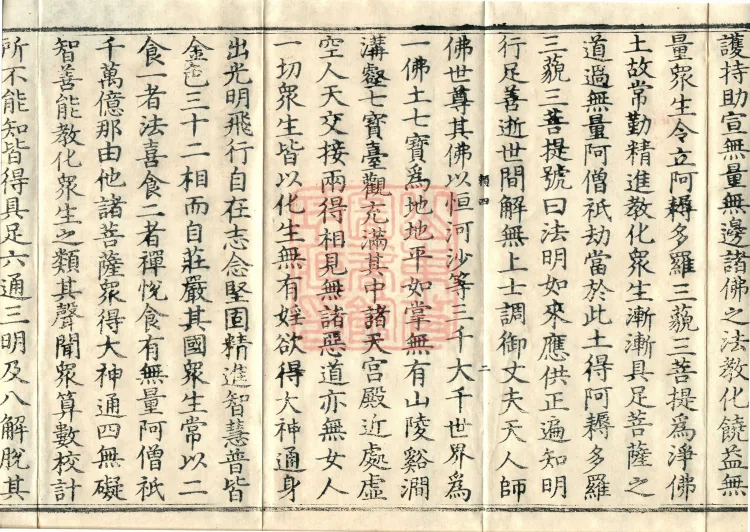 護持助宣無量無邊諸佛之法教化饒益無
量眾生令立阿耨多羅三藐三菩提為淨佛
土故常勤精進教化眾生漸漸具足菩薩之
道過無量阿僧祇劫當於此土得阿耨多羅
三藐三菩提號曰法明如來應供正遍知明
行足善逝世間解無上士調御丈夫天人師
佛世尊其佛以恒河沙等三千大千世界為
一佛土七寶為地地平如掌無有山陵谿澗
溝壑七寶臺觀充滿其中諸天宮殿近處虛
空人天交接兩得相見無諸惡道亦無女人
一切眾生皆以化生無有婬欲得大神通身
出光明飛行自在志念堅固精進智慧普皆
金色三十二相而自莊嚴其國眾生常以二
食一者法喜食二者禪悅食有無量阿僧祇
千萬億那由他諸菩薩眾得大神通四無礙
智善能教化眾生之類其聲聞眾算數校計
所不能知皆得具足六通三明及八解脫其